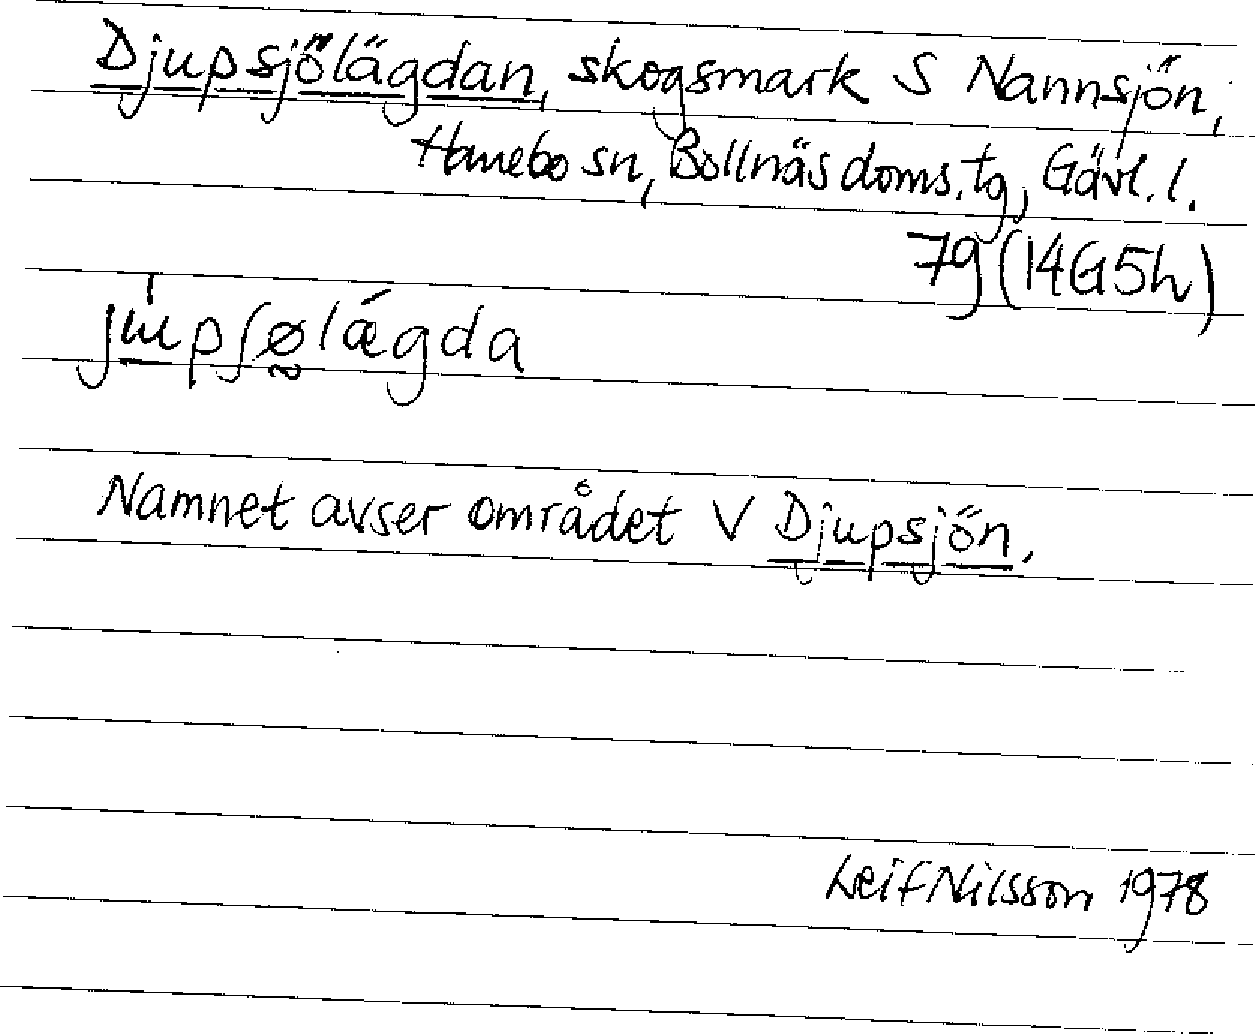 Djupsjölägdan, skogsmark S Nannsjön,
Hanebo sn, Bollnäs doms. tg, Gävl. l.
79 (14G5h)
Namnet avser området V Djupsjön.
Leif Nilsson 1978